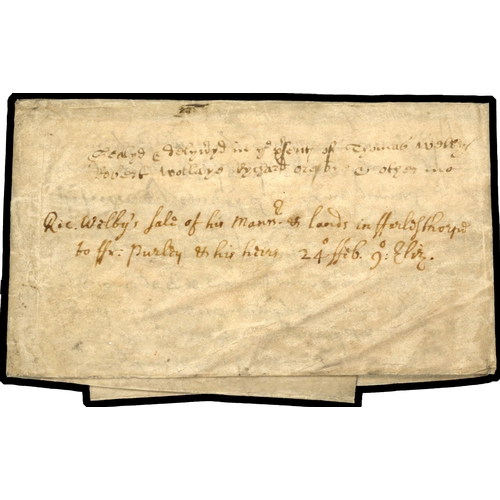 Sealyd & delyvyd in ye psents of Thomas Welby
Robert Wollaye & other mo
Ric. Welby's sale of his Mannr & lands in fforlesthorpe
to ffr: Purley & his heirs 24º ffeb. 9º: Eliz.